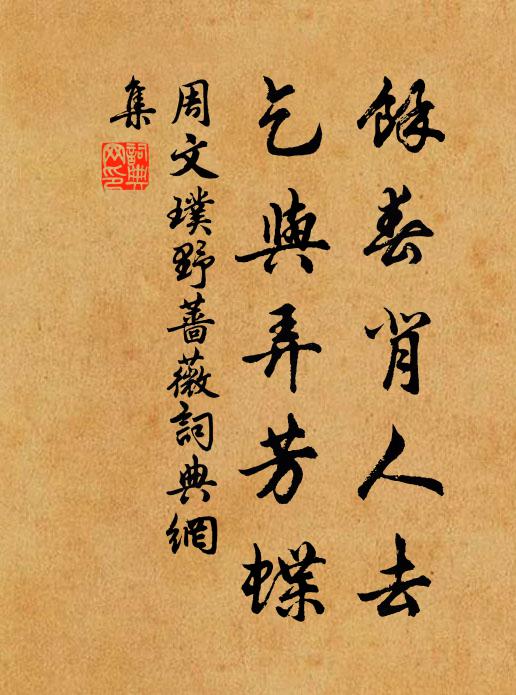 餘春背人去
乞與弄芳蝶
周文璞野薔薇詞典網
集
詞典網印